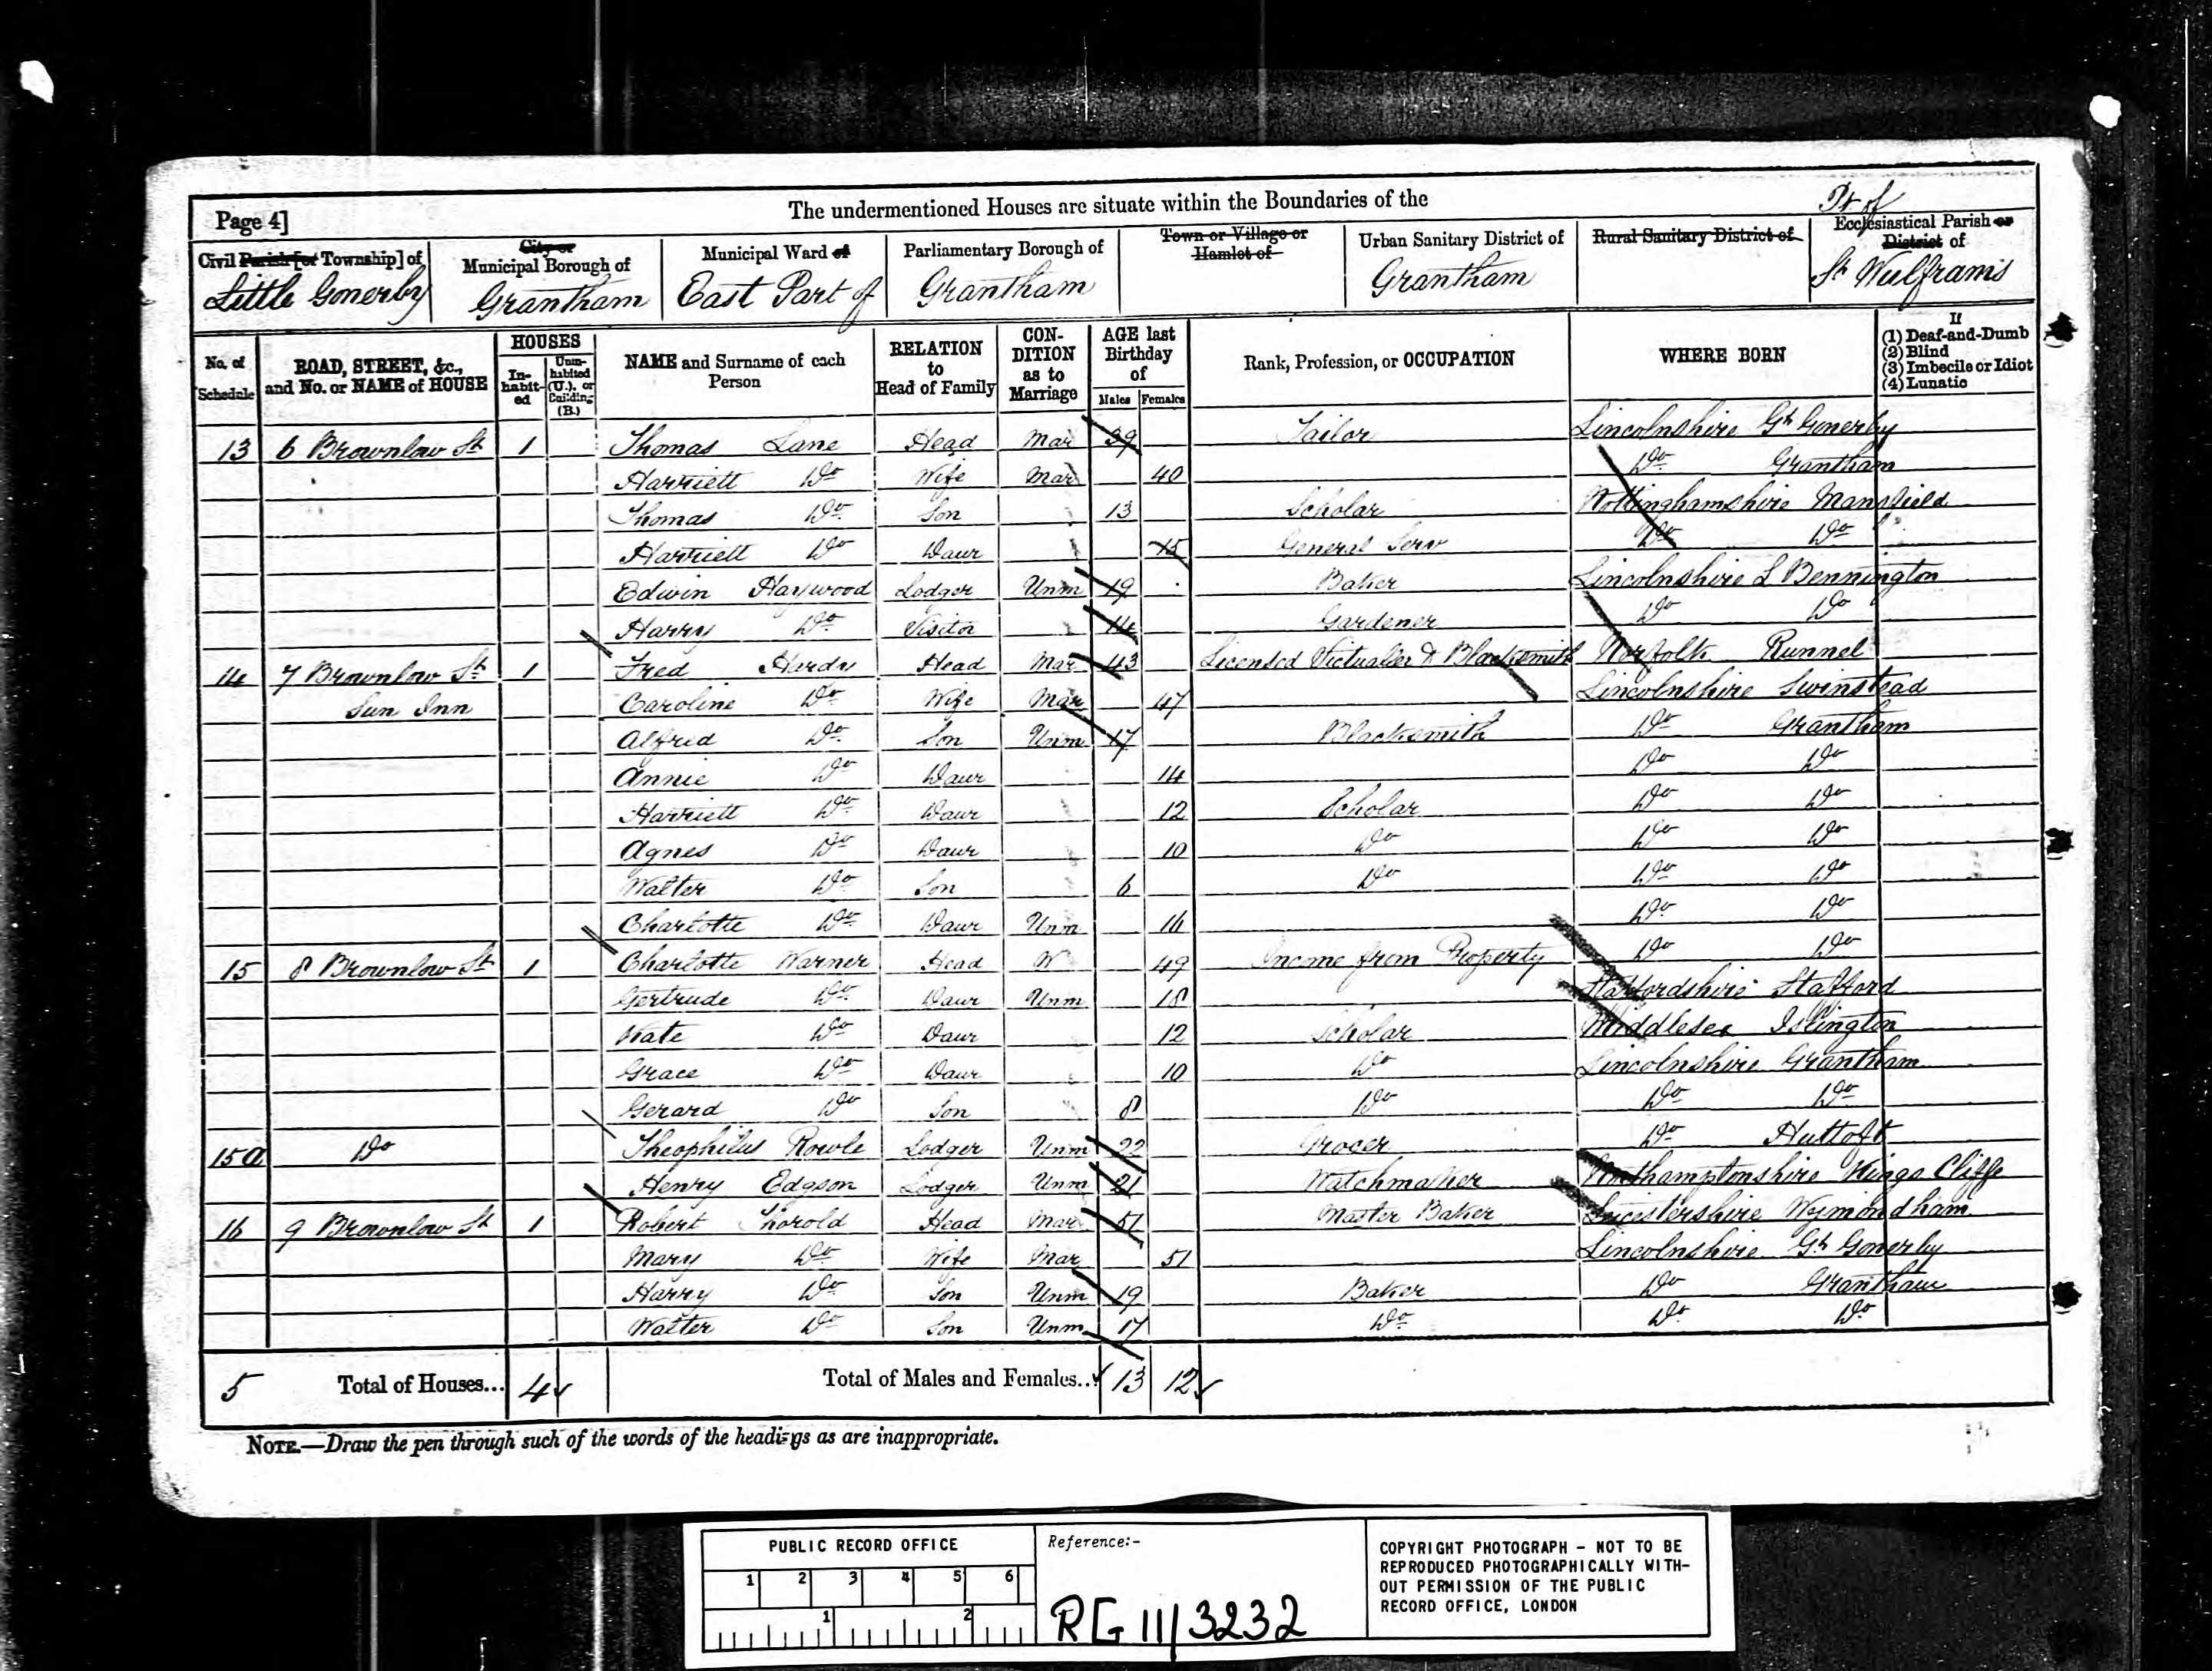 Page 4]
The undermentioned Houses are situate within the Boundaries of the
Pt of
Civil Parish [or Township] of
Little Gonerby
City or Municipal Borough of
Grantham
Municipal Ward of
East Part of
Parliamentary Borough of
Grantham
Town or Village or Hamlet of
Urban Sanitary District of
Grantham
Rural Sanitary District of
Ecclesiastical Parish or District of
St Wulframs
No. of Schedule
ROAD, STREET, &c., and No. or NAME of HOUSE
HOUSES
In-habit-ed
Unin-habited (U.), or Building (B.)
NAME and Surname of each Person
RELATION to Head of Family
CON-DITION as to Marriage
AGE last Birthday of
Males
Females
Rank, Profession, or OCCUPATION
WHERE BORN
If
(1) Deaf-and-Dumb
(2) Blind
(3) Imbecile or Idiot
(4) Lunatic
13 6 Brownlow St 1 Thomas Lane Head Mar 39 Tailor Lincolnshire Gt Gonerby
Harriett Do Wife Mar 40 Do Grantham
Thomas Do Son 13 Scholar Nottinghamshire Mansfield
Harriett Do Daur 15 General Serv Do Do
Edwin Haywood Lodger Unm 19 Baker Lincolnshire L Bennington
Harry Do Visitor 14 Gardener Do Do
14 7 Brownlow St 1 Fred Hardy Head Mar 43 Licensed Victualler & Blacksmith Norfolk Runnel
Sun Inn Caroline Do Wife Mar 47 Lincolnshire Swinstead
Alfred Do Son Unm 17 Blacksmith Do Grantham
Annie Do Daur 14 Do Do
Harriett Do Daur 12 Scholar Do Do
Agnes Do Daur 10 Do Do Do
Walter Do Son 6 Do Do Do
Charlotte Do Daur Unm 16 Do Do
15 8 Brownlow St 1 Charlotte Warner Head W 49 Income from Property Do Do
Gertrude Do Daur Unm 18 Staffordshire Stafford
Kate Do Daur 12 Scholar Middlesex Islington
Grace Do Daur 10 Do Lincolnshire Grantham
Gerard Do Son 8 Do Do Do
15a Do Theophilus Rowle Lodger Unm 22 Grocer Do Huttoft
Henry Edgson Lodger Unm 21 Watchmaker Northamptonshire Kings Cliffe
16 9 Brownlow St 1 Robert Thorold Head Mar 51 Master Baker Leicestershire Wymondham
Mary Do Wife Mar 51 Lincolnshire Gt Gonerby
Harry Do Son Unm 19 Baker Do Grantham
Walter Do Son Unm 17 Do Do Do
5 Total of Houses... 4 Total of Males and Females... 13 12
NOTE.—Draw the pen through such of the words of the headings as are inappropriate.
PUBLIC RECORD OFFICE
1 2 3 4 5 6
1 2
Reference:-
RG 11/3232
COPYRIGHT PHOTOGRAPH - NOT TO BE
REPRODUCED PHOTOGRAPHICALLY WITH-
OUT PERMISSION OF THE PUBLIC
RECORD OFFICE, LONDON